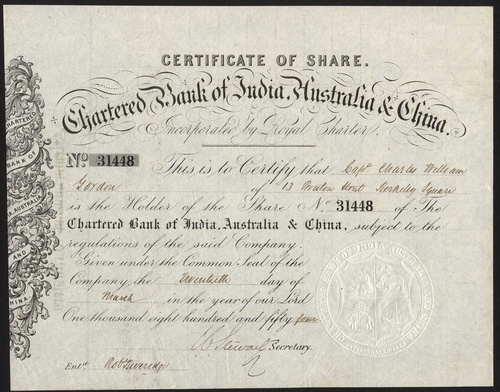 CERTIFICATE OF SHARE.
Chartered Bank of India, Australia & China.
Incorporated by Royal Charter.
No 31448 This is to Certify that Capt. Charles William
Gordon of 13 Bruton Street Berkeley Square
is the Holder of the Share No. 31448 of The
Chartered Bank of India, Australia & China, subject to the
regulations of the said Company.
Given under the Common Seal of the
Company, the Twentieth day of
March in the year of our Lord
One thousand eight hundred and fifty four
Secretary.
Entd.
CHARTERED
BANK OF
INDIA
AUSTRALIA
AND
CHINA